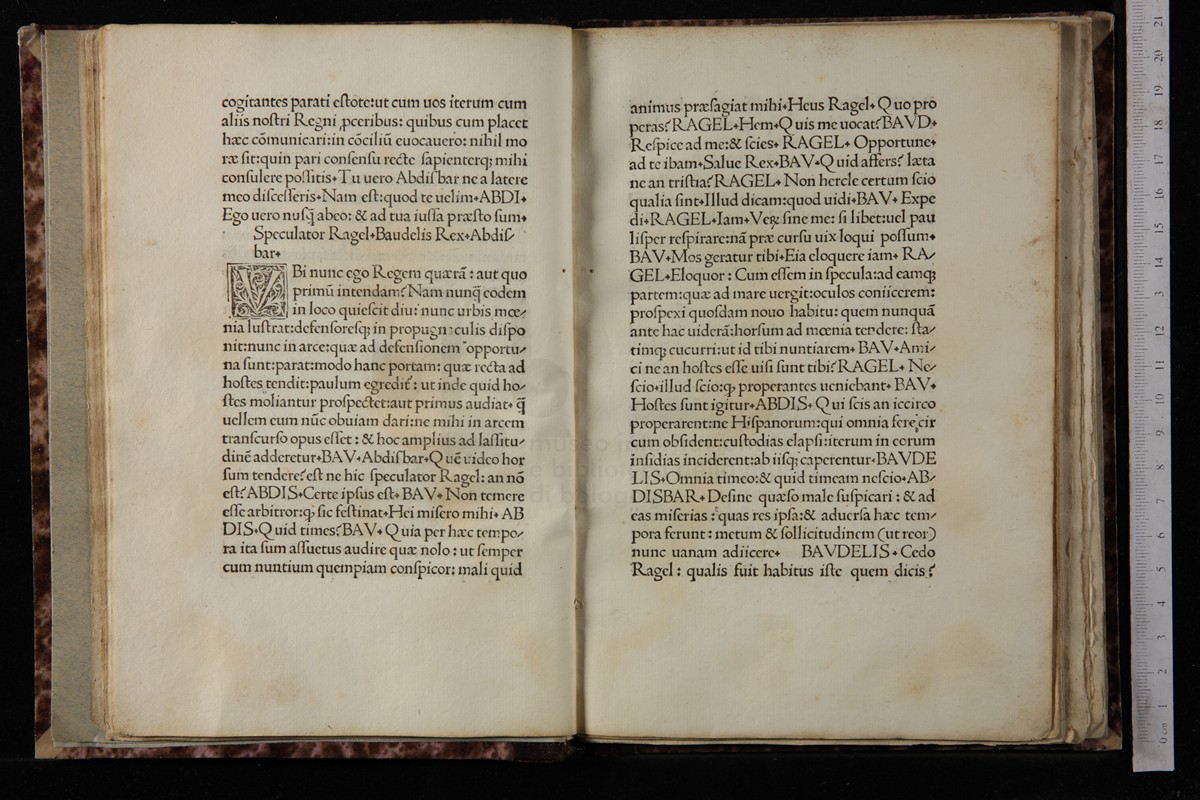 cogitantes parati eſtote:ut cum uos iterum cum
aliis noſtri Regni ꝓceribus: quibus cum placet
hæc cõmunicari:in cõciliũ euocauero: nihil mo
ræ ſit:quin pari conſenſu recte ſapienterqꝫ mihi
conſulere poſſitis. Tu uero Abdiſbar ne a latere
meo diſceſſeris. Nam eſt:quod te uelim. ABDI.
Ego uero nuſq̃ abeo: & ad tua iuſſa præſto ſum.
Speculator Ragel. Baudelis Rex. Abdiſ/
bar.
VBi nunc ego Regem quærã: aut quo
primũ intendam? Nam nunq̃ eodem
in loco quieſcit diu: nunc urbis mœ/
nia luſtrat:defenſoreſqꝫ in propugnaculis diſpo
nit:nunc in arce:quæ ad defenſionem opportu/
na ſunt:parat:modo hanc portam: quæ recta ad
hoſtes tendit:paulum egredit̃: ut inde quid ho/
ſtes moliantur proſpectet:aut primus audiat. q̃
uellem eum nũc obuiam dari:ne mihi in arcem
tranſcurſo opus eſſet: & hoc amplius ad laſſitu/
dinẽ adderetur. BAV. Abdiſbar. Quẽ uideo hor
ſum tendere? eſt ne hic ſpeculator Ragel: an nõ
eſt? ABDIS. Certe ipſus eſt. BAV. Non temere
eſſe arbitror:ꝙ ſic feſtinat. Hei miſero mihi. AB
DIS. Quid times? BAV. Quia per hæc tempo/
ra ita ſum aſſuetus audire quæ nolo: ut ſemper
cum nuntium quempiam conſpicor: mali quid
animus præſagiat mihi. Heus Ragel. Quo pro
peras? RAGEL. Hem. Quis me uocat? BAVD.
Reſpice ad me:& ſcies. RAGEL. Opportune.
ad te ibam. Salue Rex. BAV. Quid affers? læta
ne an triſtia? RAGEL. Non hercle certum ſcio
qualia ſint. Illud dicam:quod uidi. BAV. Expe
di. RAGEL. Iam. Veꝝ ſine me: ſi libet:uel pau
liſper reſpirare:nã præ curſu uix loqui poſſum.
BAV. Mos geratur tibi. Eia eloquere iam. RA/
GEL. Eloquor: Cum eſſem in ſpecula:ad eamqꝫ
partem:quæ ad mare uergit:oculos coniicerem:
proſpexi quoſdam nouo habitu: quem nunquã
ante hac uiderã:horſum ad mœnia tendere: ſta/
timqꝫ cucurri:ut id tibi nuntiarem. BAV. Ami/
ci ne an hoſtes eſſe uiſi ſunt tibi? RAGEL. Ne/
ſcio. illud ſcio:ꝙ properantes ueniebant. BAV.
Hoſtes ſunt igitur. ABDIS. Qui ſcis an iccirco
properarent:ne Hiſpanorum:qui omnia fere cir
cum obſident:cuſtodias elapſi:iterum in eorum
inſidias inciderent:ab iiſqꝫ caperentur. BAVDE
LIS. Omnia timeo:& quid timeam neſcio. AB/
DISBAR. Deſine quæſo male ſuſpicari: & ad
eas miſerias: quas res ipſa:& aduerſa hæc tem/
pora ferunt: metum & ſollicitudinem (ut reor)
nunc uanam adiicere. BAVDELIS. Cedo
Ragel: qualis fuit habitus iſte quem dicis?